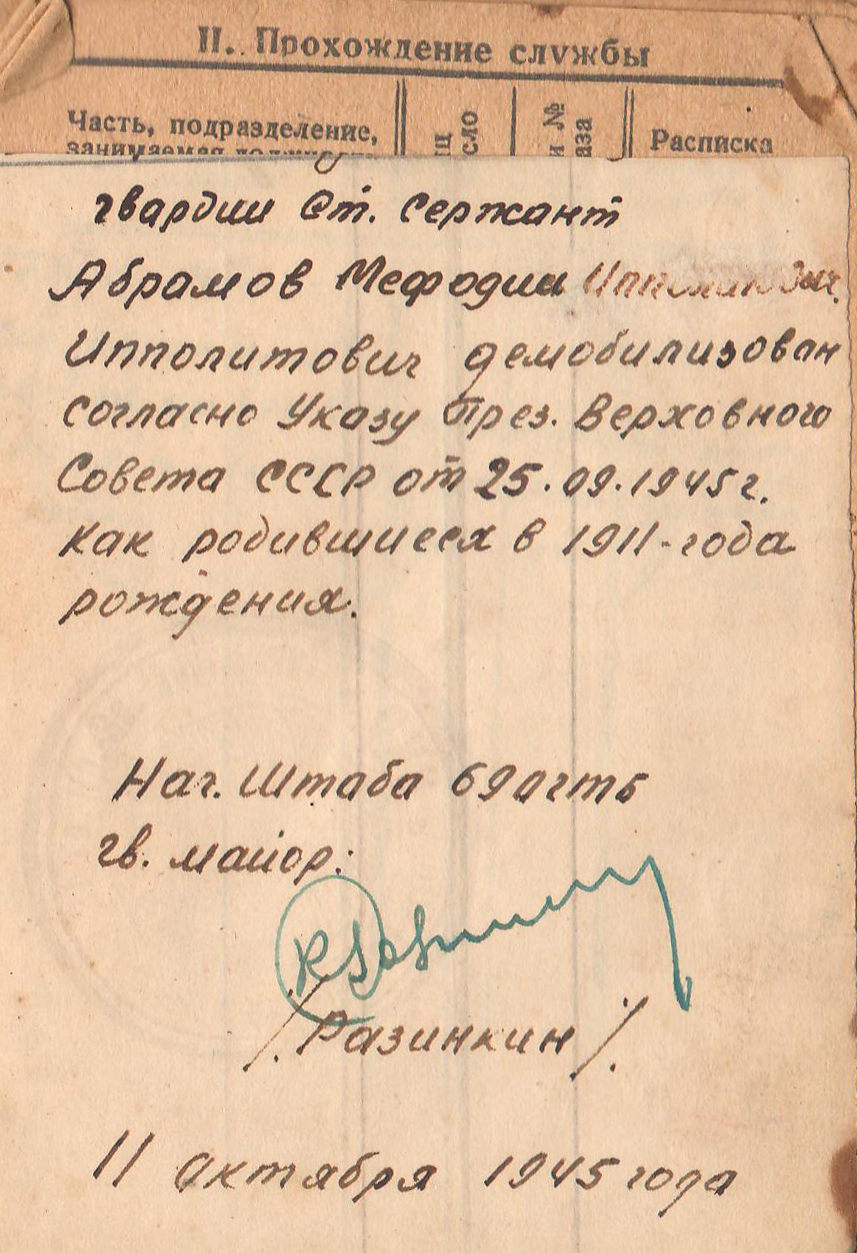 II. Прохождение службы
Часть, подразделение,
Расписка
гвардии Ст. Сержант
Абрамов Мефодий
Ипполитович демобилизован
согласно Указу През. Верховного
Совета СССР от 25.09.1945 г.
как родившиеся в 1911-года
рождения.
Нач. Штаба 69 огтб
гв. майор:
/. Разинкин /.
11 Октября 1945 года